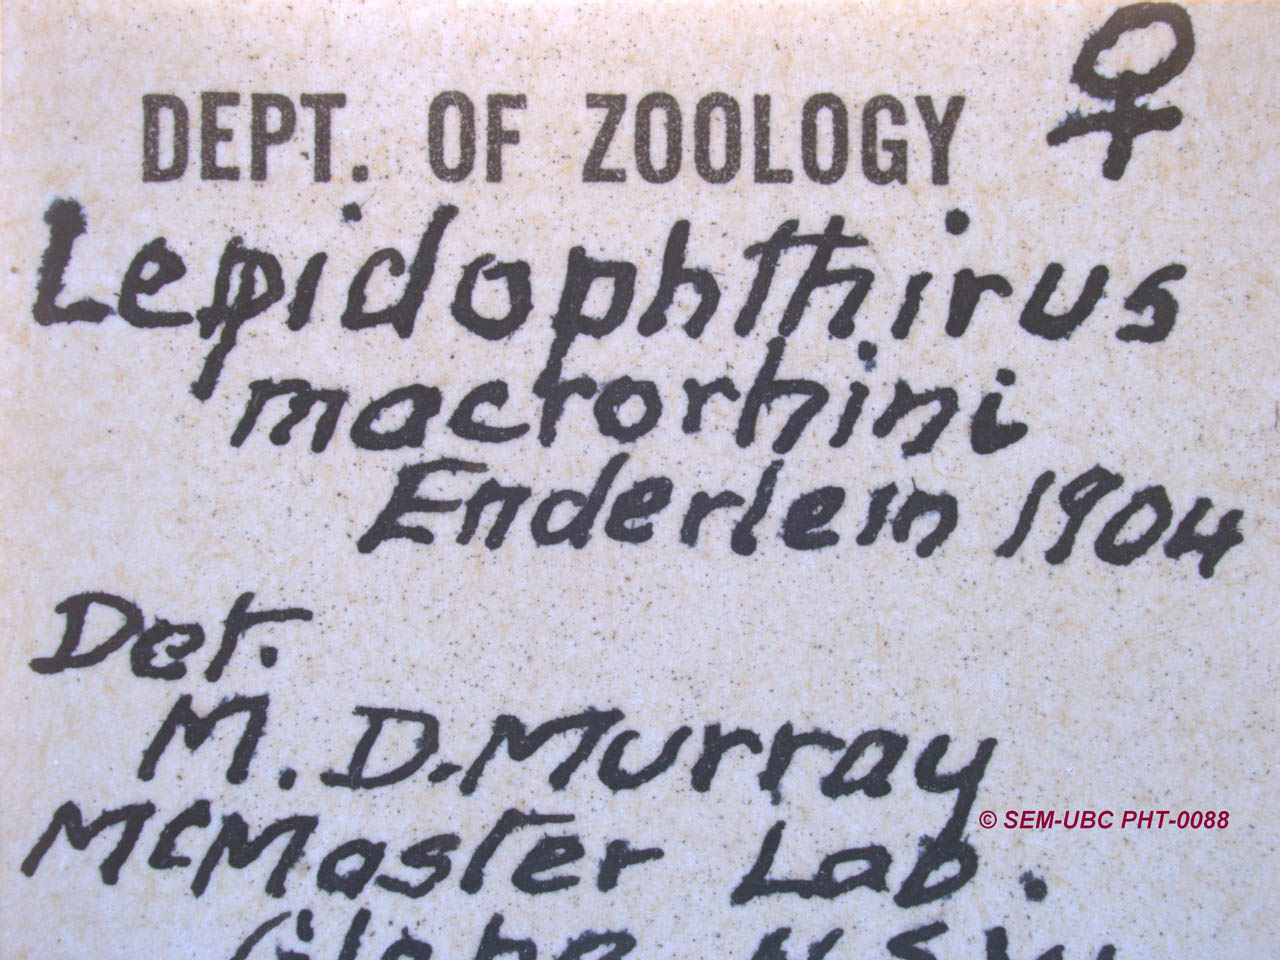 ♀
DEPT. OF ZOOLOGY
Lepidophthirus
macrorhini
Enderlein 1904
Det.
M. D. Murray
© SEM-UBC PHT-0088
McMaster Lab.
Glebe N.S.W.